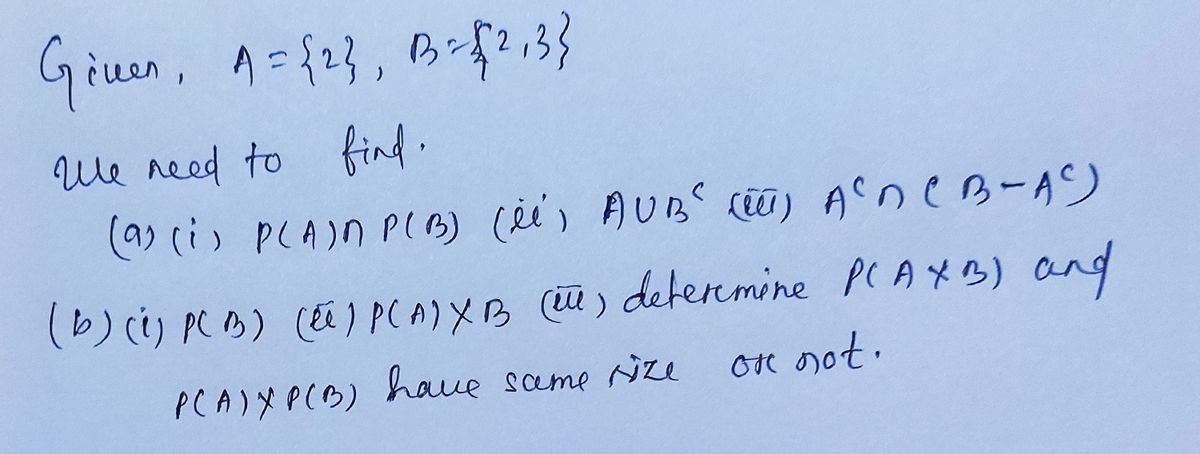 Given, A = {2}, B = {2,3}
We need to find.
(a) (i) P(A)∩ P(B) (ii) A∪Bᶜ (iii) Aᶜ∩(B-Aᶜ)
(b) (i) P(B) (ii) P(A)×B (iii) deteremine P(A×B) and
P(A)×P(B) have same size or not.